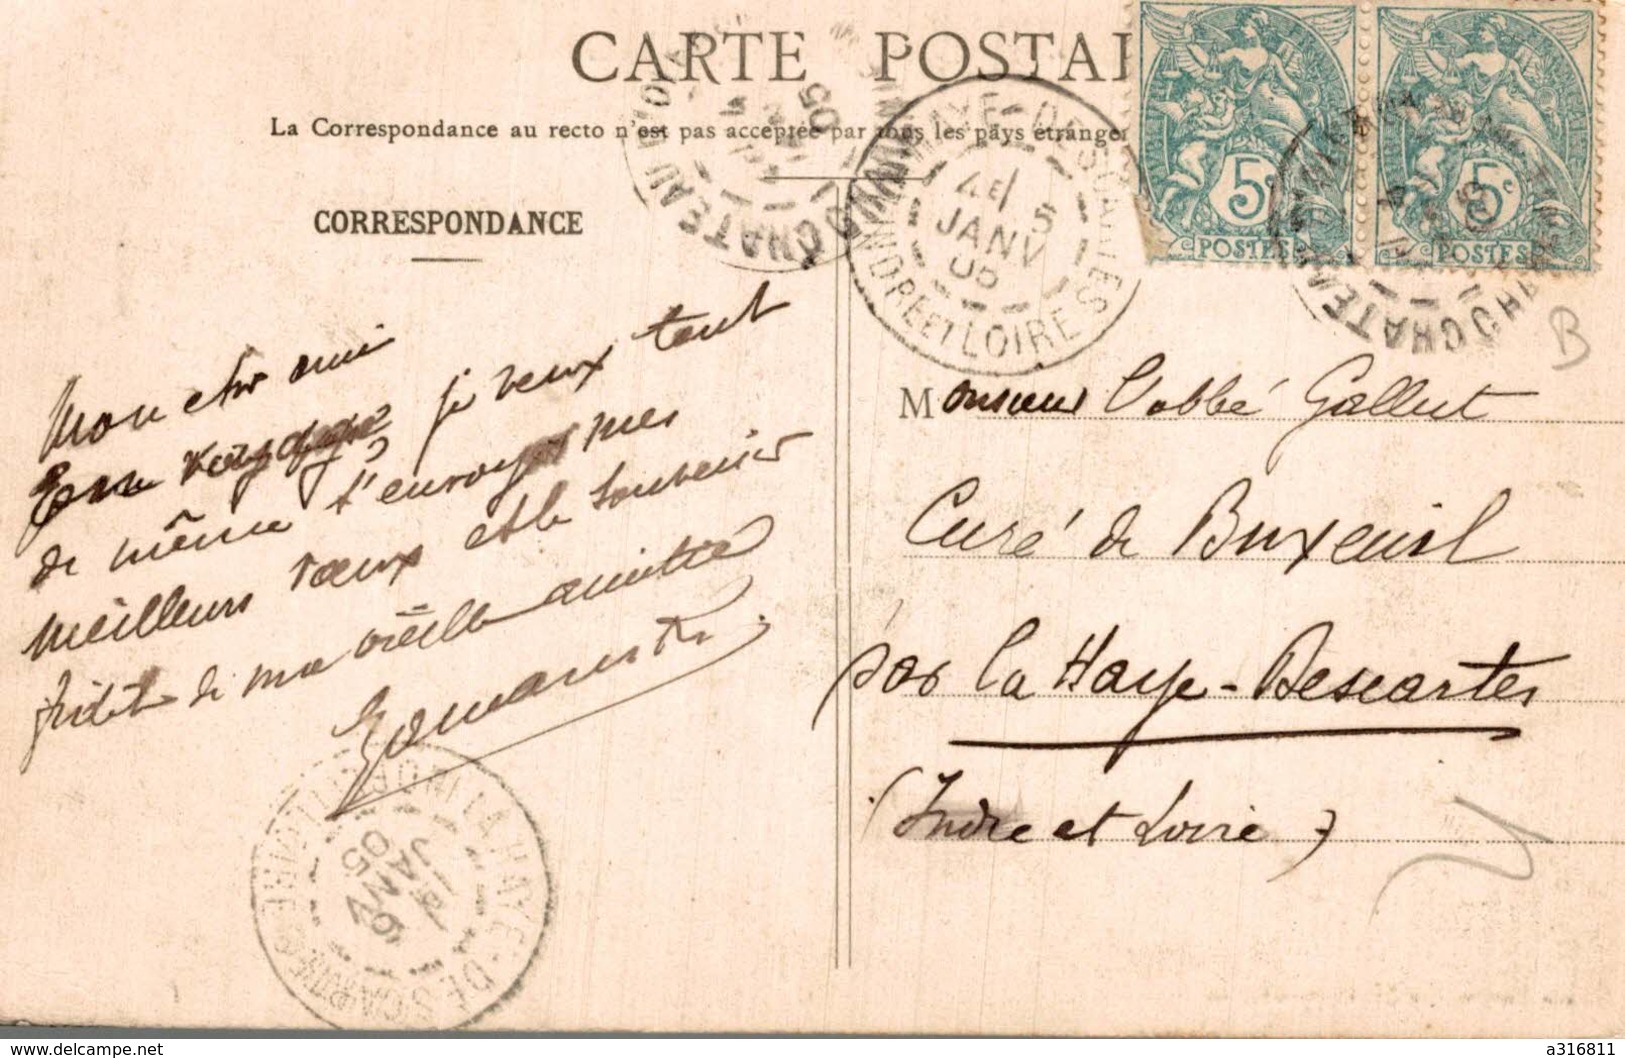 CARTE POSTAL
La Correspondance au recto n'est pas acceptée par tous les pays étranger
CORRESPONDANCE
Mon cher ami
En voyage, je veux tout
de même t'envoyer mes
meilleurs vœux et le souvenir
fidèle de ma vieille amitié
Monsieur l'abbé Gallut
Curé de Buxeuil
par La Haye-Descartes
(Indre et Loire)
LA HAYE-DESCARTES
INDRE ET LOIRE
4E / 5
JANV
05
CHATEAU
05
LA HAYE-DESCARTES
INDRE ET LOIRE
6
JANV
05
5c
POSTES
5c
POSTES
CHATEAU
B
www.delcampe.net
a316811